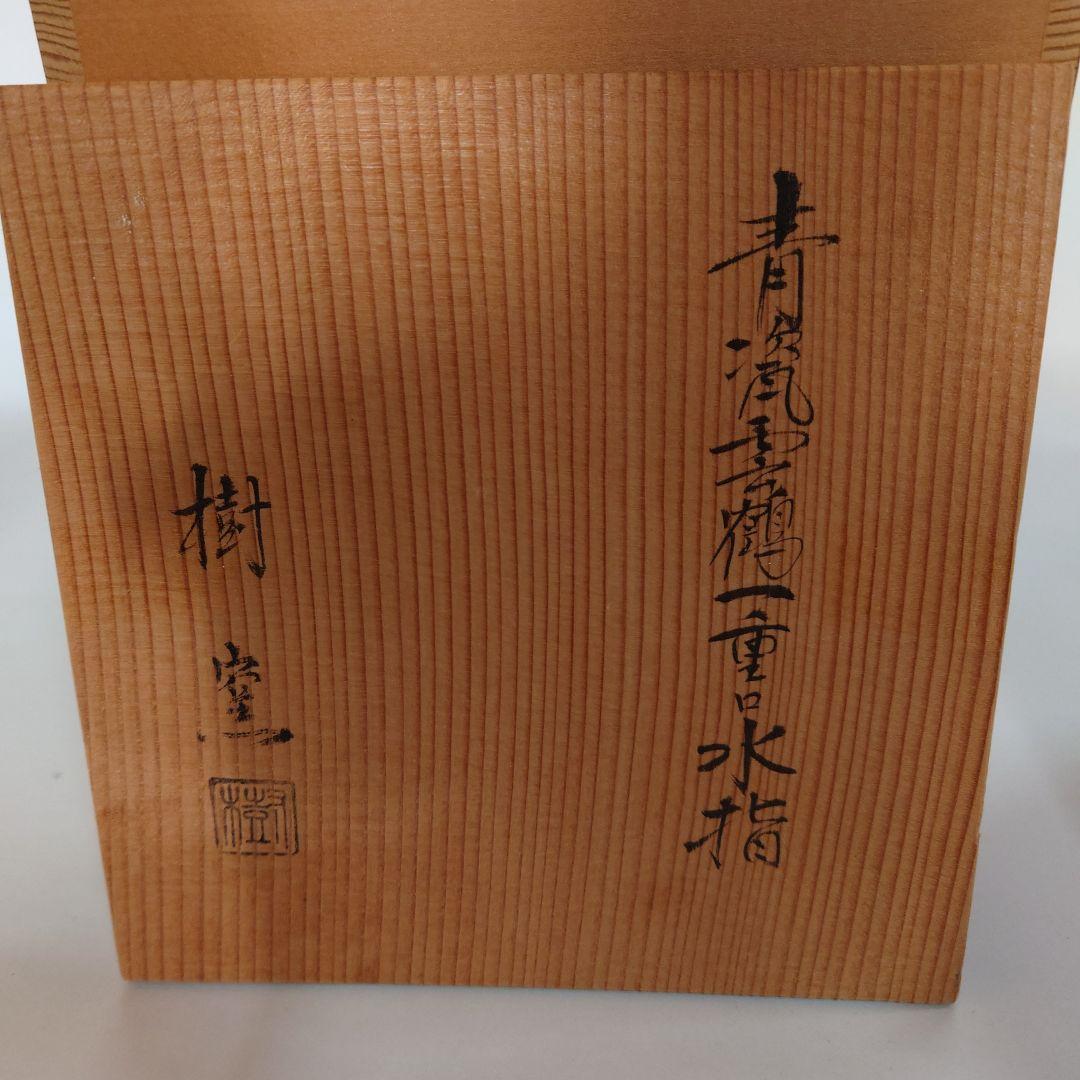 青瓷雲鶴一重口水指
樹窯
樹